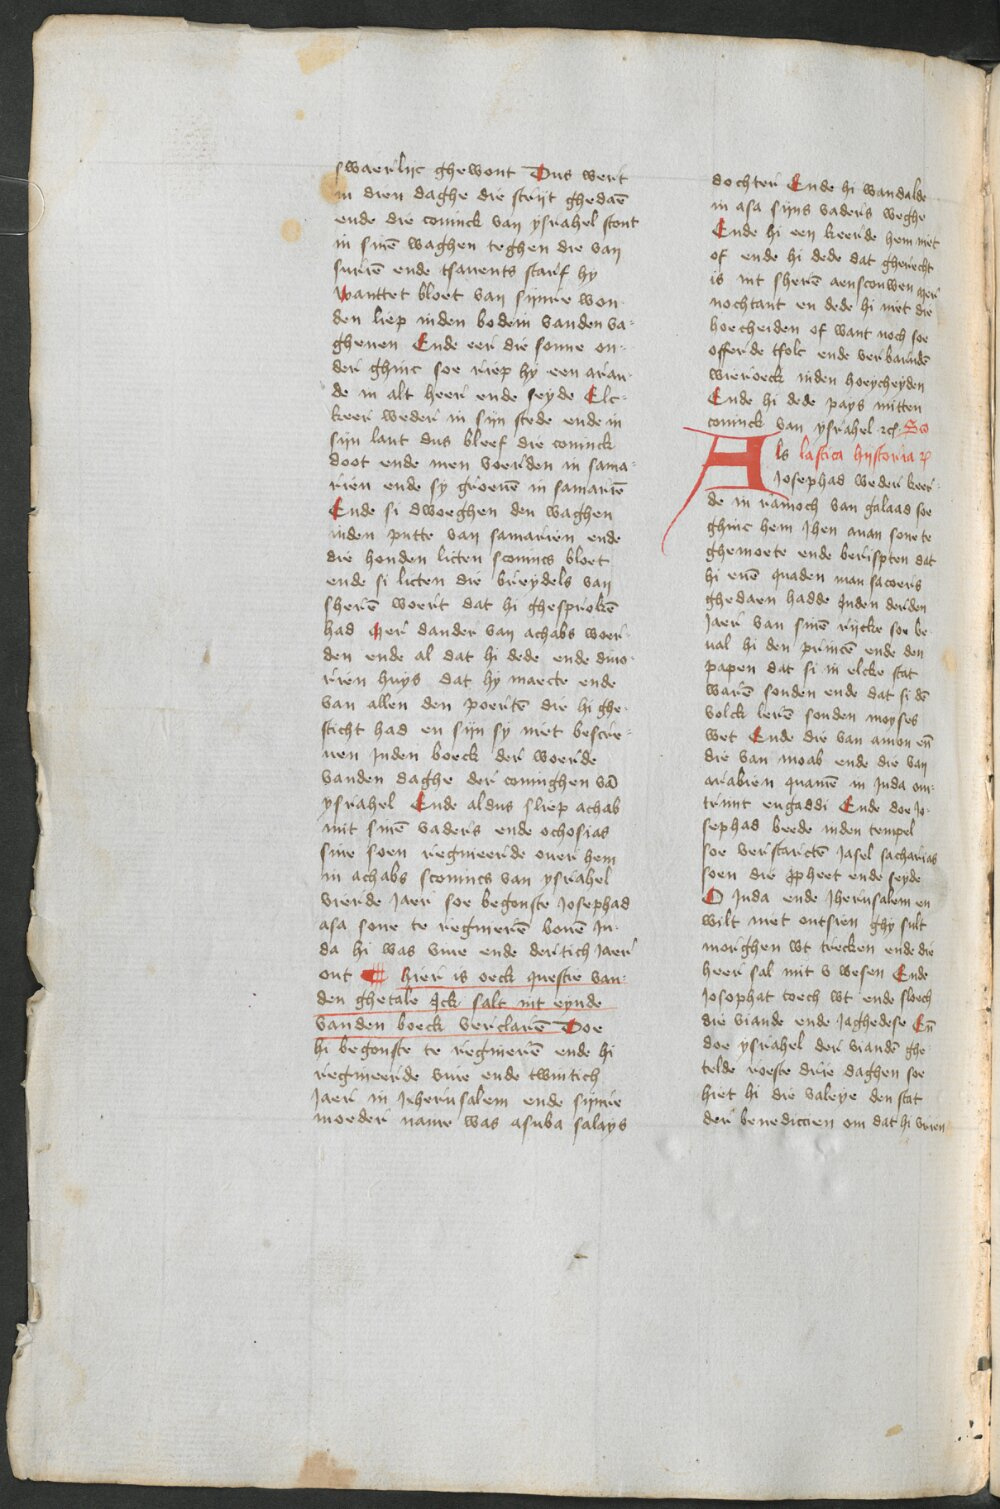 swaerlijc ghewont Dus wert
in dien daghe die strijt ghedaē
ende die coninck van ysrahel stont
in sinē waghen teghen die van
surien ende tsavents starf hy
wanttet bloet van sijnre won
den liep inden bodem vanden wa-
ghenen Ende eer die sonne on-
der ghinc soe riep hy een
de in alt heer ende seyde Elc-
keer weder in sijn stede ende in
sijn lant dus bleef die coninck
doot ende men voerden in sama-
rien ende sy groeuē in samariē
Ende si dwoeghen den waghen
inden putte van samarien ende
die honden licten sconincs bloet
ende si licten die breydels van
sherē woert dat hi ghesprokē
had Mer dander van achabs woer-
den ende al dat hi dede ende
huys dat hy maecte ende
van allen den poertē die hi ghe-
sticht had en sijn sy niet bescre-
uen Inden boeck der woerde
vanden daghe der coninghen vā
ysrahel Ende aldus sliep achab
mit sinē vaders ende ochosias
sine soen regneerde ouer hem
in achabs sconincs van ysrahel
vierde Jaer soe begonste Josephad
asa sone te regnierē bouē Ju-
da hi was viue ende dertich Jaer
out hier is oeck questie van-
den ghetale Ick salt int eynde
vanden boeck verclarē Doe
hi begonste te regnierē ende hi
regneerde viue ende twintich
Jaer in Jherusalem ende sijnre
moeder name was asuba salays
dochter Ende hi wandalde
in asa sijns vaders weghe
Ende hi een keerde hem niet
of ende hi dede dat gherecht
is int sherē aenscouwen mer
nochtant en dede hi niet die
hoecheiden of want noch soe
offerde tfolc ende verbarndē
wieroeck inden hoeycheyden
Ende hi dede pays mitten
coninck van ysrahel Sco
Als lastica hystoria
Josephad weder keer-
de in ramoch van galaad soe
ghinc hem Jhen anan sone te
ghemoete ende berispten dat
hi enē quaden man sacoers
ghedaen hadde Inden derden
Jaer van sinē rijcke soe be-
ual hi den princē ende den
papen dat si in elcke stat
warē souden ende dat si dē
volck lerē souden moyses
wet Ende die van amon eñ
die van moab ende die van
arabien quamē in Juda om-
trint engaddi Ende doe Jo-
sephad beede inden tempel
soe verstarctē Jasel sacharias
soen die ꝓpheet ende seyde
O Juda ende Jherusalem en
wilt niet ontsien ghy sult
morghen wt trecken ende die
heer sal mit v wesen Ende
Josophat toech wt ende sloech
die viande ende Jaghedese Eñ
doe ysrahel der viandē ghe-
telde roefte drie daghen soe
hiet hi die valeye den stat
der benedictien om dat hi vrien